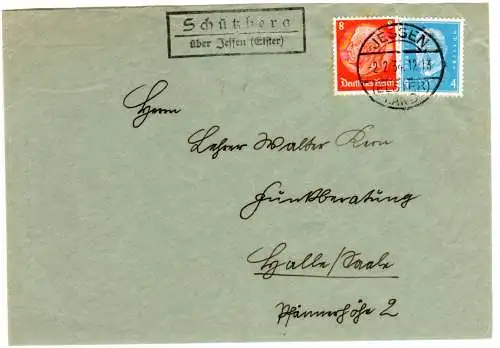 Schützberg
über Jessen (Elster)
8
Deutsches Reich
4
JESSEN
(ELSTER)
LAND
Herrn
Lehrer Walter Kern
Funkberatung
Halle/Saale
Pfännerhöhe 2